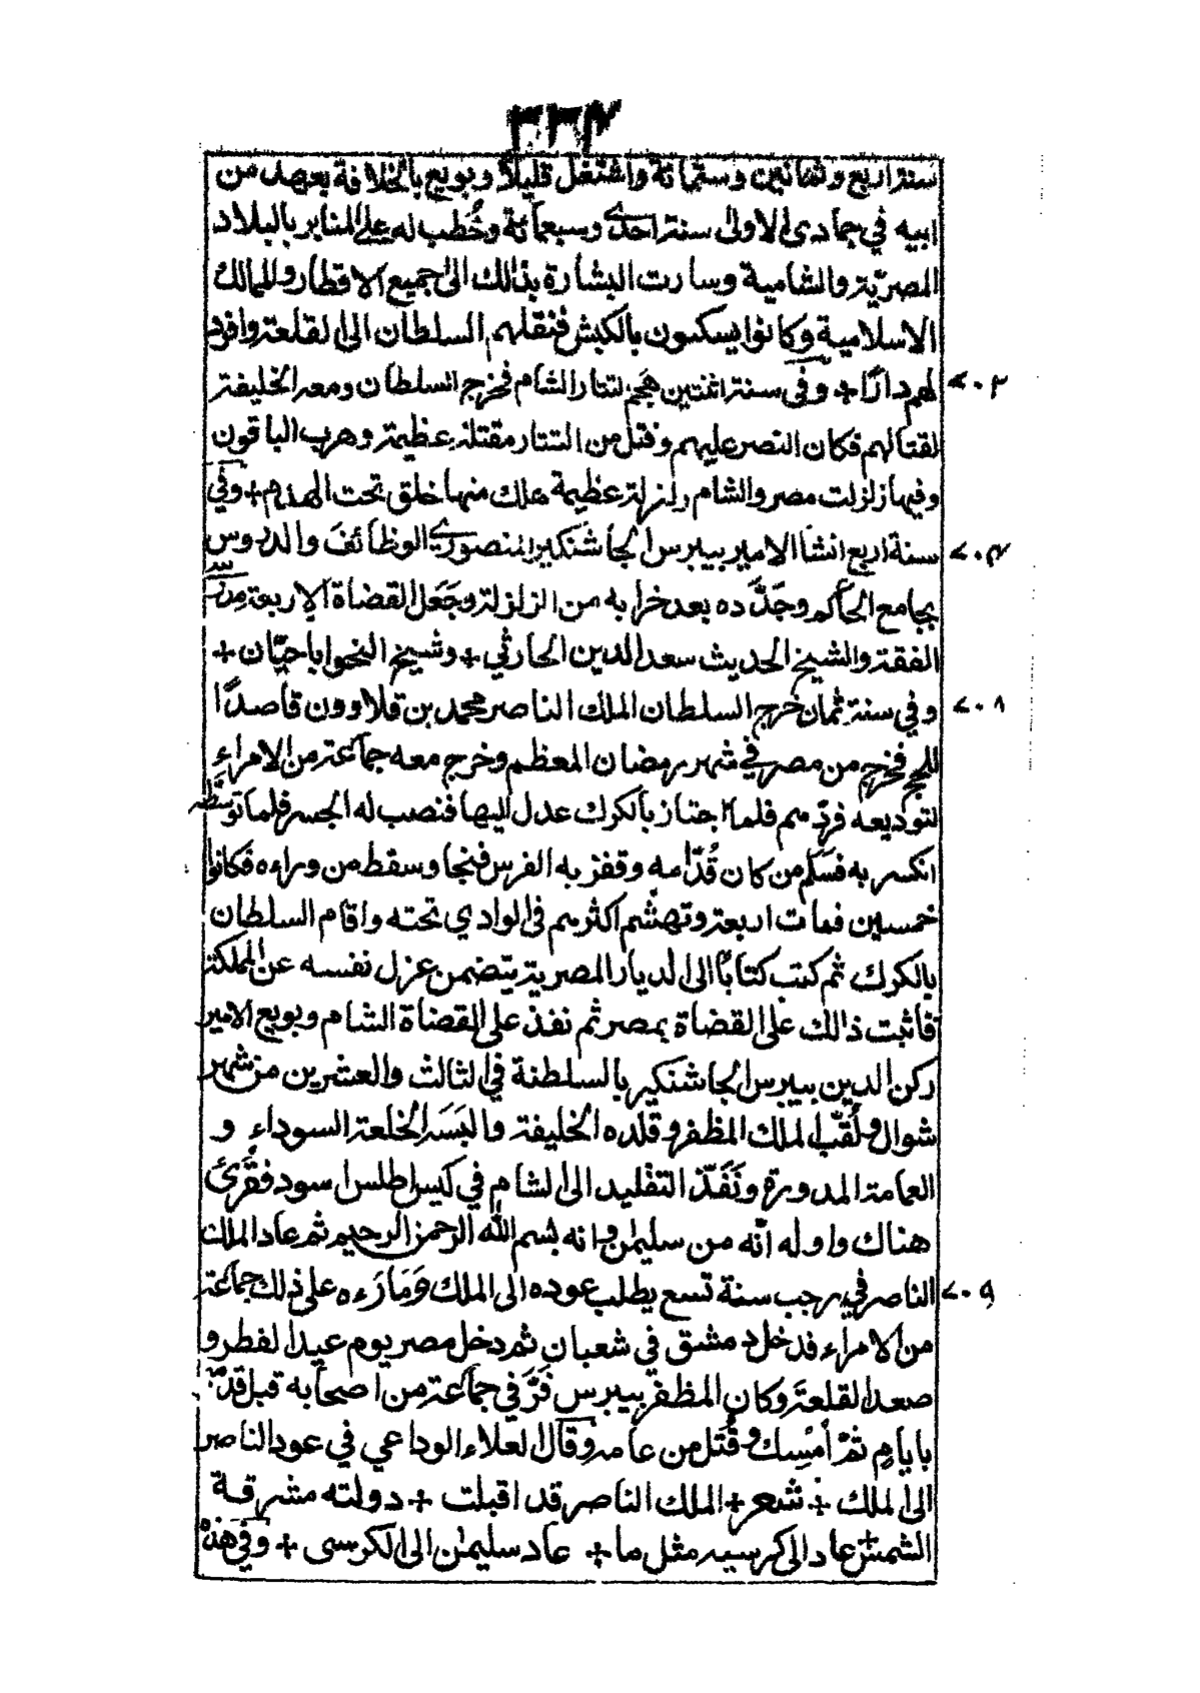 ٣٣٤
سنة اربع وثمانين وستمائة واشتغل قليلًا وبويع بالخلافة بعهد من
ابيه في جمادى الاولى سنة احدى وسبعمائة وخُطب له على المنابر بالبلاد
المصريّة والشامية وسارت البشارة بذالك الى جميع الاقطار والممالك
الاسلامية وكانوا يسكنون بالكبش فنقلهم السلطان الى القلعة وافرد
لهم دارًا + وفي سنة اثنتين هجم لتتار الشام فخرج السلطان ومعه الخليفة ٧٠٢
لقتالهم فكان النصر عليهم وقتل من التتار مقتلة عظيمة وهرب الباقون
وفيها زلزلت مصر والشام زلزلة عظيمة هلك منها خلق تحت الهدم + وفي
سنة اربع انشا الامير بيبرس الجاشنكير المنصوري الوظائف والدروس ٧٠٤
بجامع الحاكم وجدَّده بعد خرابه من الزلزلة وجَعَل القضاة الاربعة مدرّسي
الفقة والشيخ الحديث سعد الدين الحارثي + وشيخ النحو اباحيّان +
وفي سنة ثمان خرج السلطان الملك الناصر محمد بن قلاوون قاصدًا ٧٠٨
للحج فخرج من مصر في شهر رمضان المعظم وخرج معه جماعة من الامراءِ
لتوديعه فردّهم فلما اجتاز بالكرك عدل اليها فنصب له الجسر فلما توسّطه
انكسر به فسَلم من كان قُدّامه وقفز به الفرس فنجا وسقط من وراءه فكانوا
خمسين فمات اربعة وتهشّم اكثرهم في الوادي تحته واقام السلطان
بالكرك ثم كتب كتابًا الى الديار المصرية يتضمن عزل نفسه عن المملكة
فاثبت ذالك على القضاة بمصر ثم نفذ على القضاة الشام وبويع الامير
ركن الدين بيبرس الجاشنكير بالسلطنة في الثالث والعشرين من شهر
شوال ولُقّب لملك المظفر وقلده الخليفة والبَسَه الخلعة السوداءِ و
العمامة المدورة ونَفَّذ التقليد الى الشام في كيس اطلس اسود فقُرئ
هناك واوله انّه من سليمان وانه بسم الله الرحمن الرحيم ثم عاد الملك
الناصر في رجب سنة تسع يطلب عوده الى الملك وَمَارَءه على ذلك جماعة ٧٠٩
من الامراء فدخل دمشق في شعبان ثم دخل مصر يوم عيد الفطر و
صعد القلعةَ وكان المظفر بيبرس فَرَّ في جماعة من اصحابه قبل قدومه
بايامٍ ثمّ اُمْسِك وقُتل من عامه وقال العلاء الوداعي في عود الناصر
الى الملك + شعر + الملك الناصر قد اقبلت + دولته مشرقة
الشمسْ + عاد الى كرسيه مثل ما + عاد سليمان الى الكرسى + وفي هذه